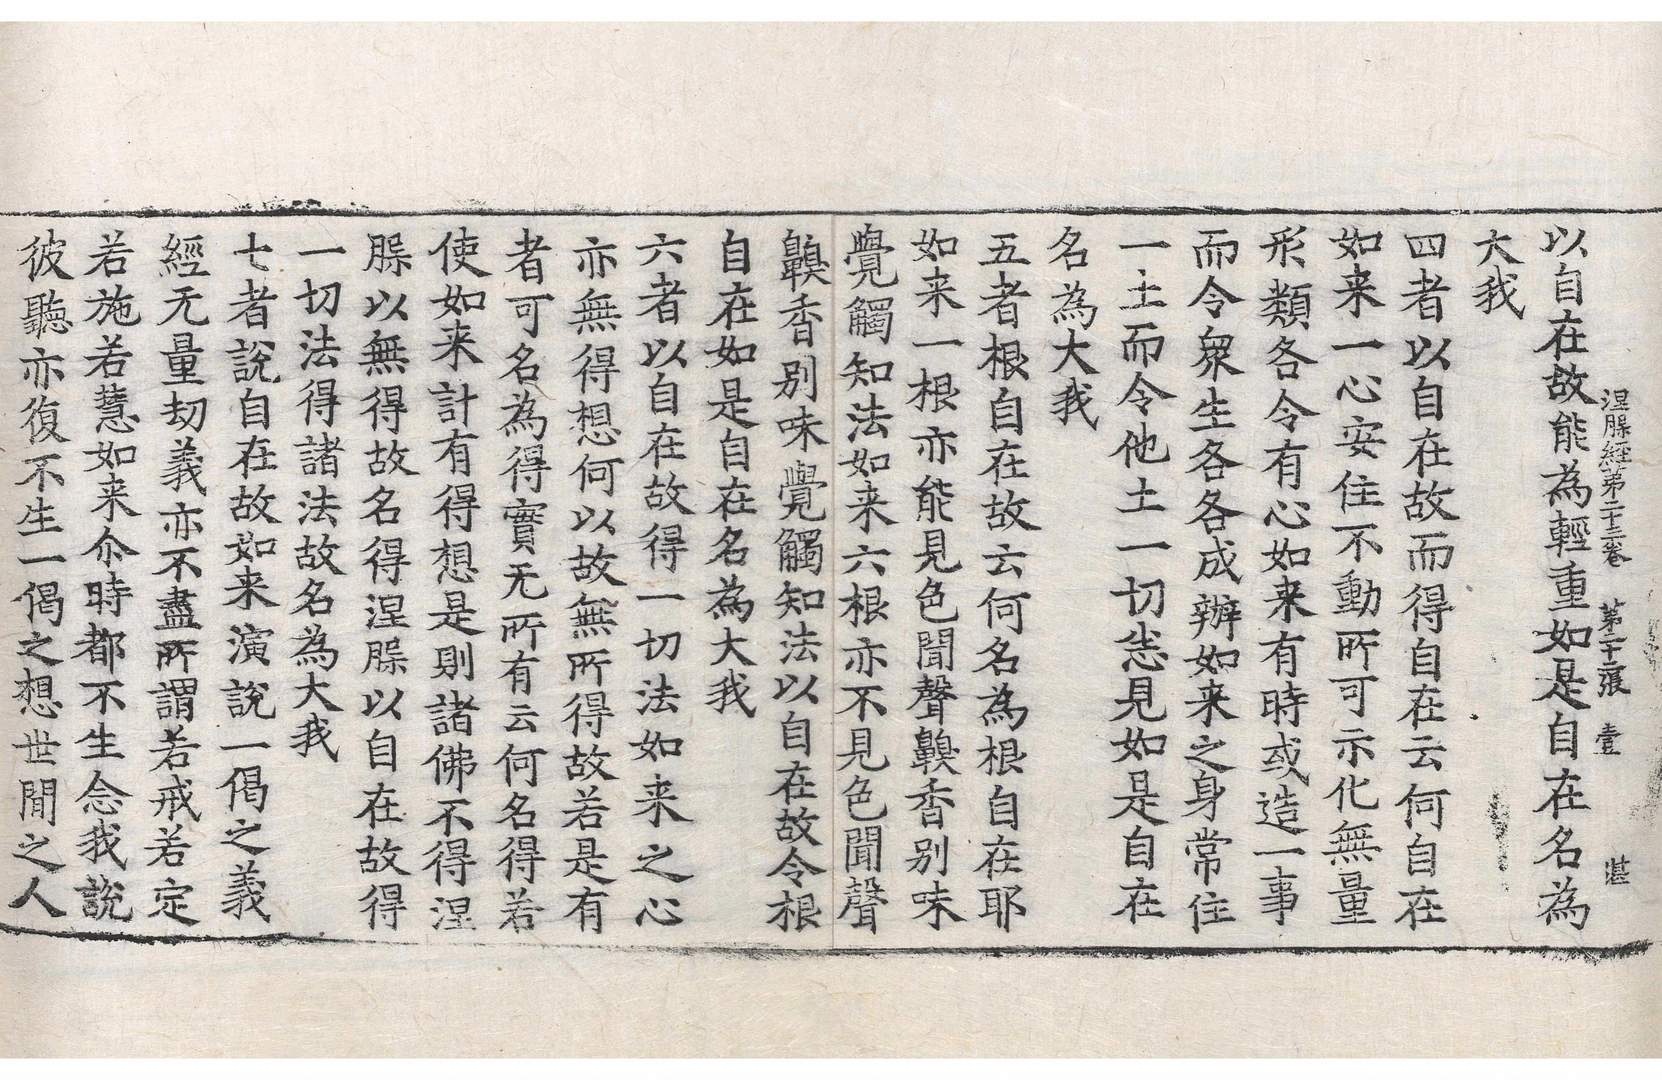 涅槃經第二十三卷 第二十二張 壹 湛
以自在故能為輕重如是自在名為
大我
四者以自在故而得自在云何自在
如来一心安住不動所可示化無量
形類各令有心如来有時或造一事
而令衆生各各成辦如来之身常住
一土而令他土一切悉見如是自在
名為大我
五者根自在故云何名為根自在耶
如来一根亦能見色聞聲齅香别味
覺觸知法如来六根亦不見色聞聲
齅香别味覺觸知法以自在故令根
自在如是自在名為大我
六者以自在故得一切法如来之心
亦無得想何以故無所得故若是有
者可名為得實无所有云何名得若
使如来計有得想是則諸佛不得涅
槃以無得故名得涅槃以自在故得
一切法得諸法故名為大我
七者說自在故如来演說一偈之義
經无量劫義亦不盡所謂若戒若定
若施若慧如来尒時都不生念我說
彼聽亦復不生一偈之想世間之人